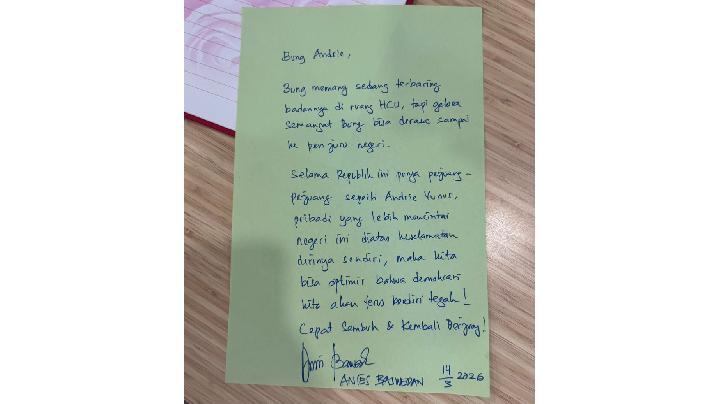 Bung Andrie,
Bung memang sedang terbaring
badannya di ruang HCU, tapi gelora
semangat Bung bisa dirasa sampai
ke penjuru negeri.
Selama Republik ini punya pejuang-
pejuang seperti Andrie Yunus,
pribadi yang lebih mencintai
negeri ini diatas keselamatan
dirinya sendiri, maka kita
bisa optimis bahwa demokrasi
kita akan terus berdiri tegak!
Cepat Sembuh & Kembali Berjuang!
ANIES BASWEDAN 14/3 2026